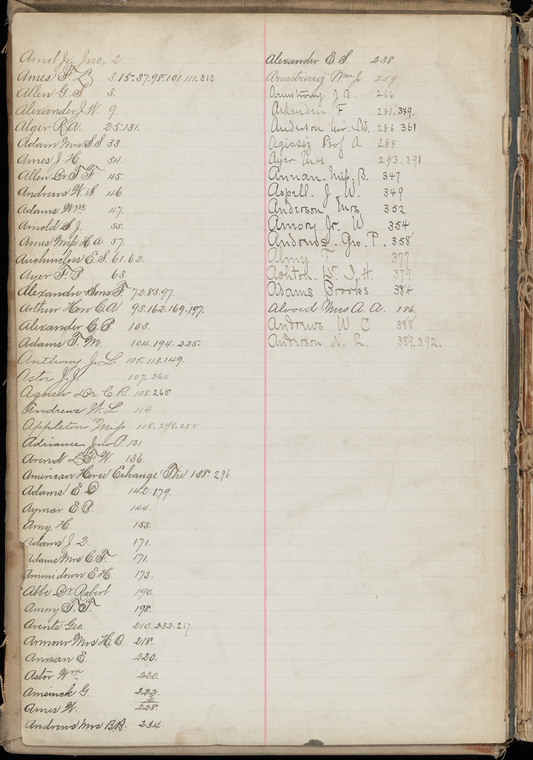 Arnol Jr Jno. 2
Ames F. L. 3.15.37.98.101.111.310
Allen G. S 3.
Alexander J. W. 9.
Alger R. A. 25.131.
Adam Mrs S. S 33.
Ames J. H. 34.
Allen Dr. T. F. 45.
Andrews W. S 46
Adams Wm 47.
Arnold S. J. 55.
Ames Miss H. A 57.
Auchincloss E. S. 61.62.
Ayer F. B. 63.
Alexandre Sons F. 72.83.97.
Arthur Hon C. A 93.162.169.197.
Alexander C. B 103.
Adams T. M. 104.194.225.
Anthony J. L. 105.113.149.
Astor J. J. 107.260
Agnew Dr. C. R. 108.265
Andrews W. L. 114
Appleton Miss 115.
Adriance Jno P. 131
Arend F. W. 136.
American Horse Exchange The 138.296
Adams E. D 142.179.
Aymar E B 144.
Amy H. 153.
Adams J. Q. 171.
Adams Mrs C. F. 171.
Ammidown E. H. 173.
Abbe Dr Robert 190.
Amory F. F. 198.
Arents Geo. 210.232.267
Armour Mrs H. O 218.
Annan E. 220.
Astor Wm 220.
Amsinck G 222.
Ames W. 228.
Andrews Mrs B. B. 234.
Alexander E S. 238
Armstrong Wm J. 259
Armstrong J. B. 266
F. 281.389.
Anderson W. 286 361
Agassiz Prof A 288
Ayer Mrs 293.391
Annan. Miss. B. 347
Aspell. J. W. 349
Anderson Mrs 352
Amory Jr. W 354
Andrews. Geo. P. 358
Amy F 377
Ashton W. J. H. 379
Adams Brooks 384
Alvord Mrs A. A. 386.
Andrews W C 388
Anderson N. L. 389.392.